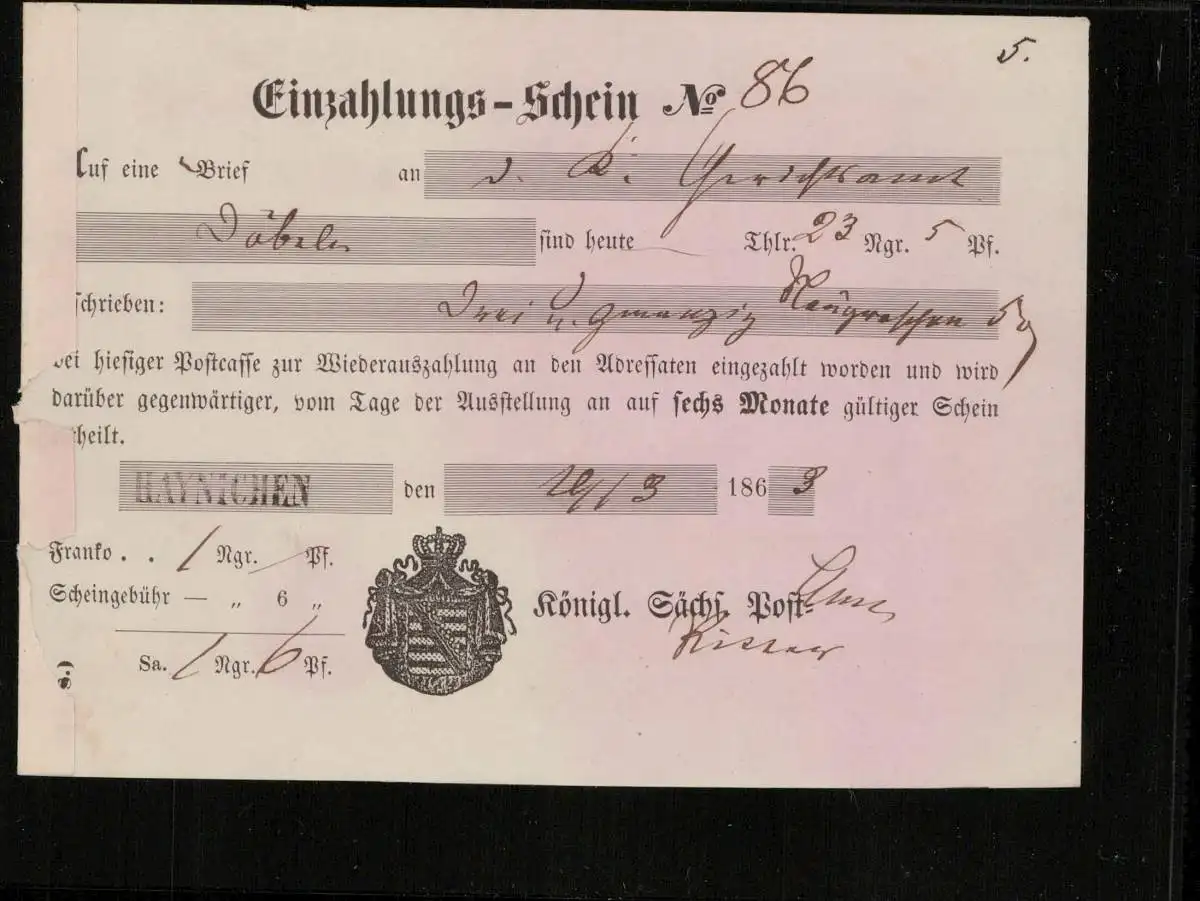 5.
Einzahlungs-Schein No 86
Auf eine Brief an d. K. Gerichtsamt
Döbeln sind heute — Thlr. 23 Ngr. 5 Pf.
schrieben: Drei u. zwanzig Neugroschen 5 ₰
bei hiesiger Postcasse zur Wiederauszahlung an den Adressaten eingezahlt worden und wird
darüber gegenwärtiger, vom Tage der Ausstellung an auf sechs Monate gültiger Schein
theilt.
HAYNICHEN den 186 3
Franko . . 1 Ngr. — Pf.
Scheingebühr — „ 6 „
Königl. Sächs. Post-
Ritter
Sa. 1 Ngr. 6 Pf.